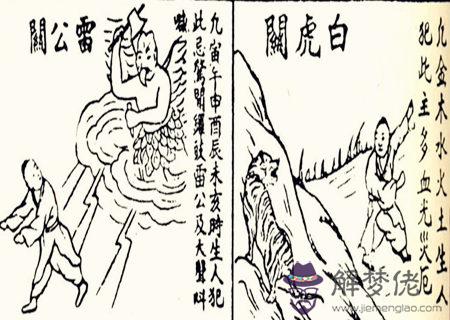 白虎關
凡金木水火土生人
犯此主多血光災厄
雷公關
凡寅午申酉辰未亥時生人犯
此忌驚聞鑼鼓雷公及大聲叫
喊
解梦佬
www.jiemenglao.com